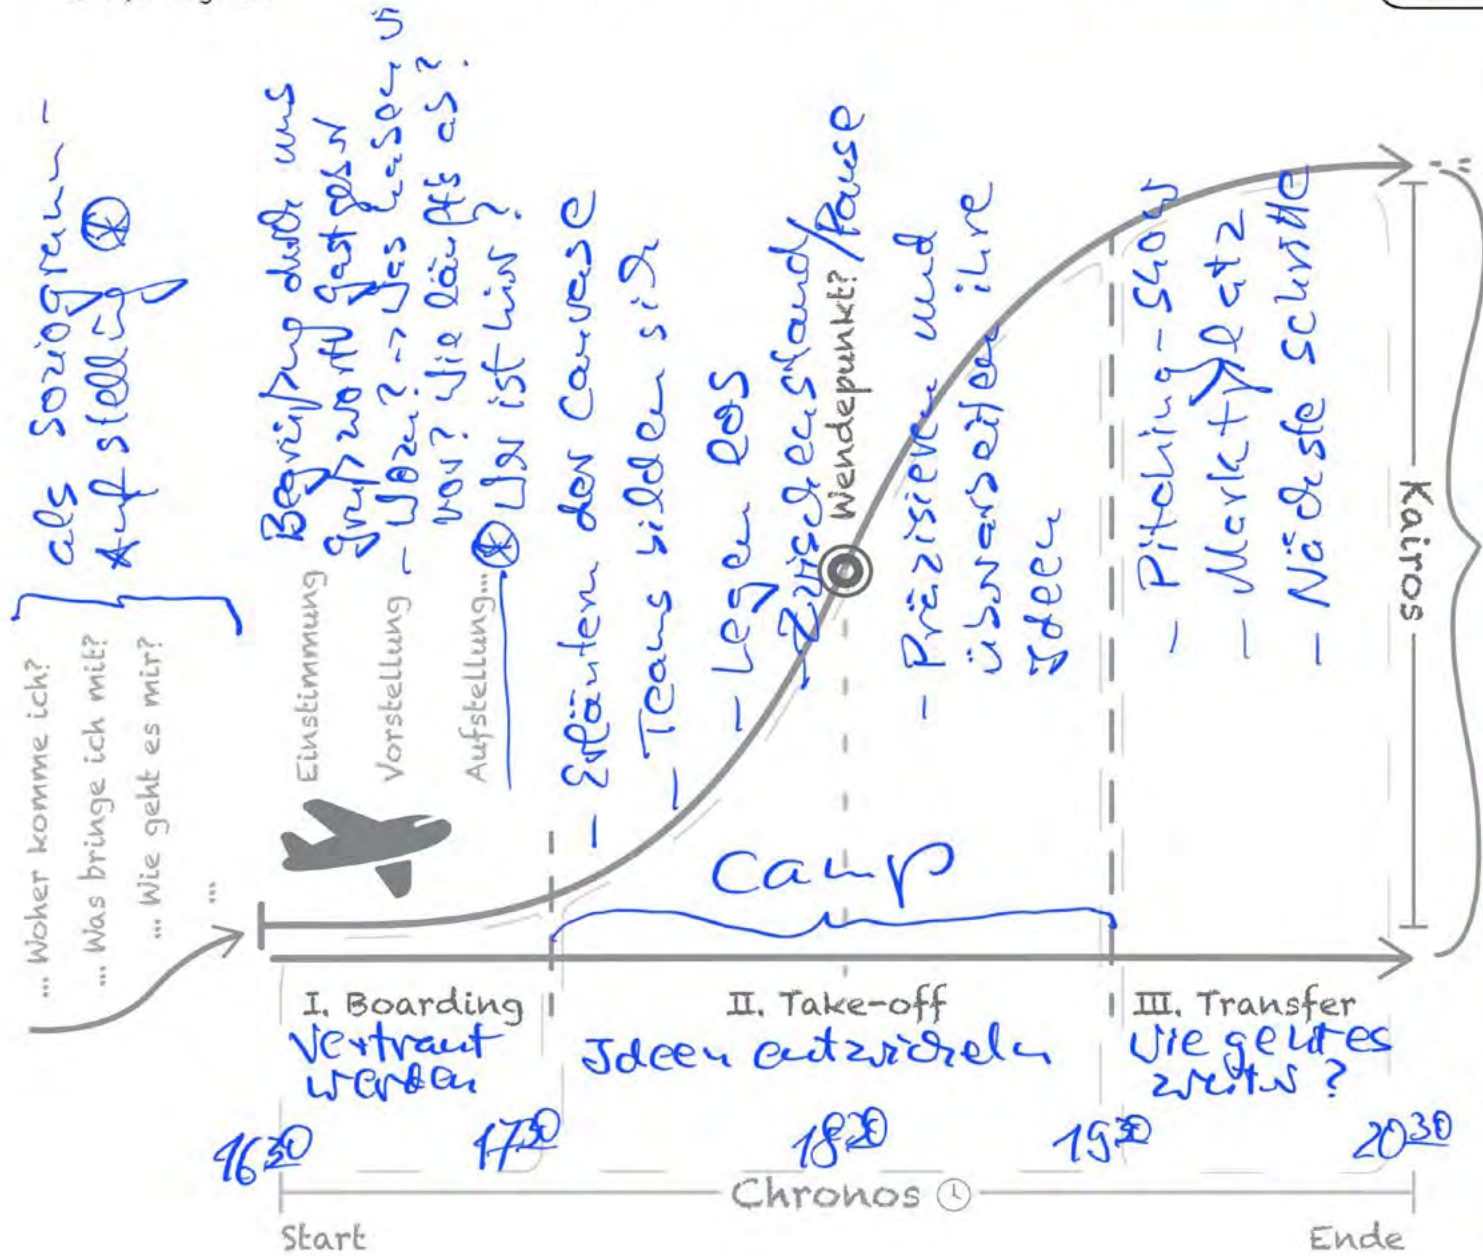 ... Woher komme ich?
... Was bringe ich mit?
... Wie geht es mir?
...
als Soziogramm –
Aufstellung
Einstimmung
Begrüßung durch uns
Grußwort Gastgeber
Vorstellung
– Wozu? -> Was haben wir
vor? Wie läuft's ab?
Aufstellung...
Wer ist hier?
– Erläutern der Canvase
– Teams bilden sich
– Legen los
– Zwischenstand
Wendepunkt? /Pause
– Präzisieren und
überarbeiten ihre
Ideen
– Pitching-Show
– Marktplatz
– Nächste Schritte
Kairos
Camp
I. Boarding
Vertraut
werden
II. Take-off
Ideen entwickeln
III. Transfer
Wie geht es
weiter?
16 30
17 30
18 30
19 30
20 30
Chronos
Start
Ende